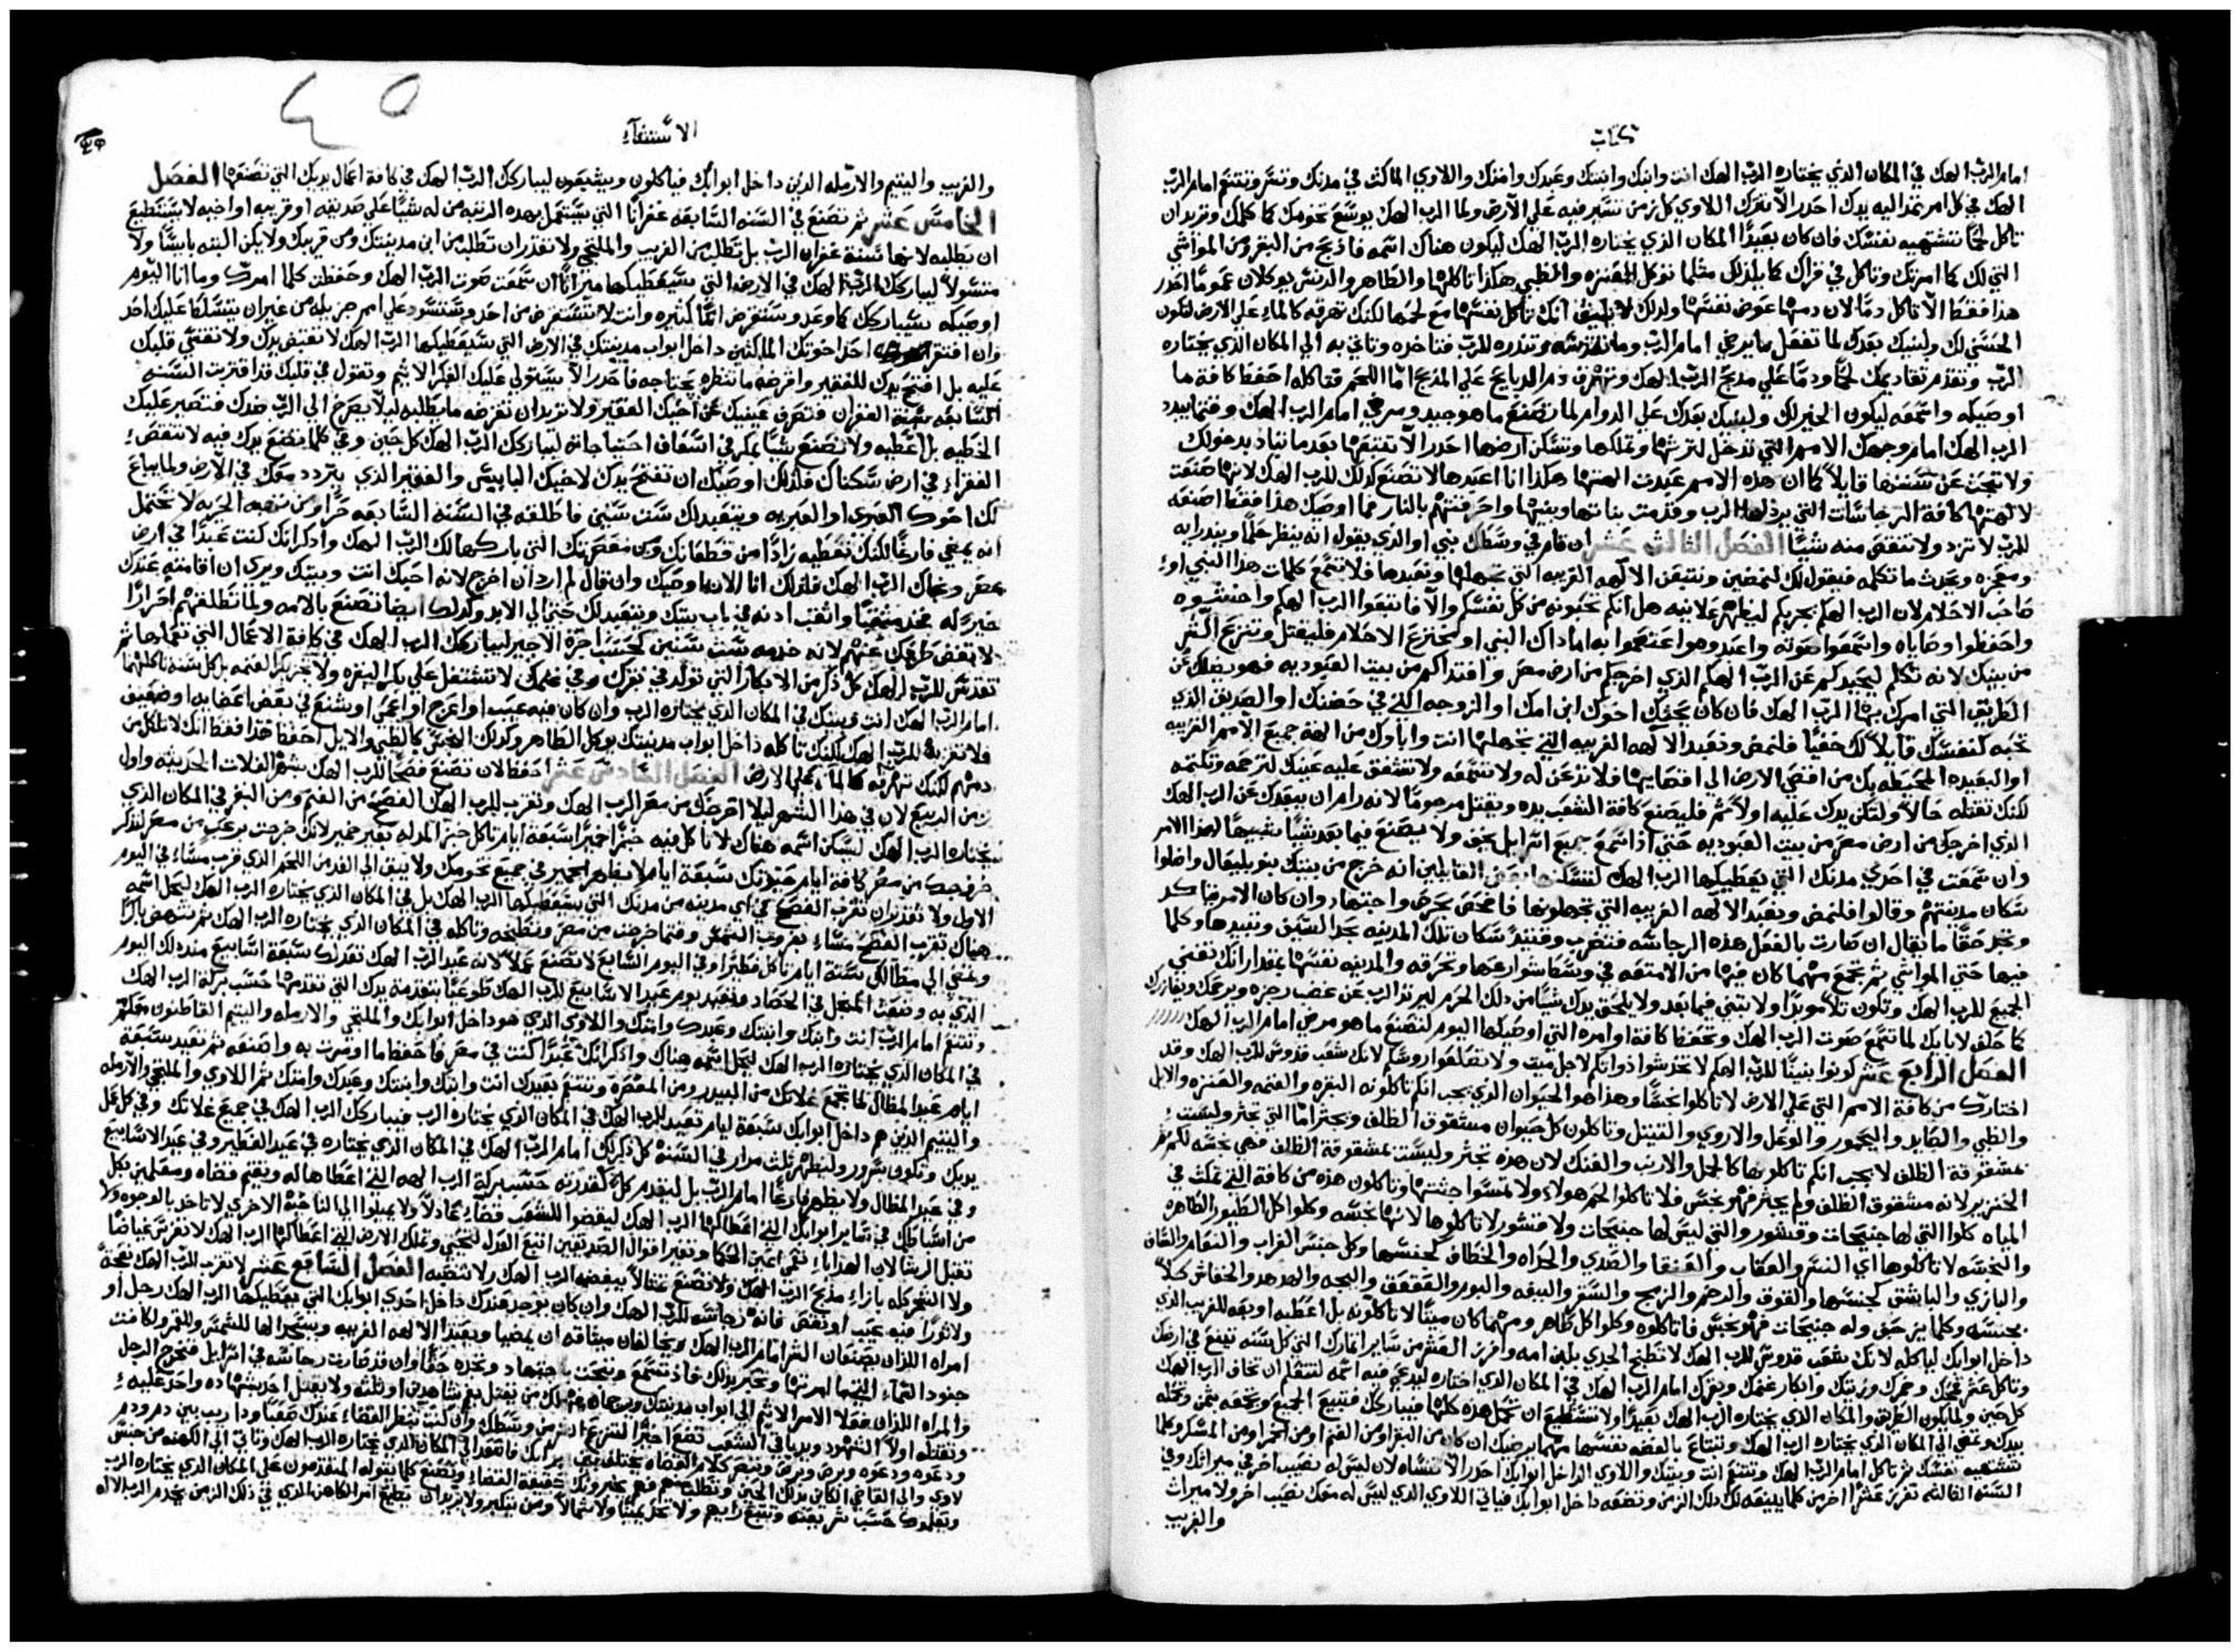 كتاب
امام الرب الهك في المكان الذي يختاره الرب الهك انت وابنك وابنتك وعبدك وامتك واللاوي الماكث في مدنك وتسر وتتنعم امام الرب
الهك في كل امر تمد اليه يدك احذر الا تترك اللاوي كل زمن تسير فيه علي الارض ولما الرب الهك يوسع تخومك كما كلمك وتريد ان
تاكل لحمًا تشتهيه نفسك فان كان بعيدًا المكان الذي يختاره الرب الهك ليكون هناك اسمه فاذبح من البقر ومن المواشي
التي لك كما امرتك وتاكل في قراك كما يلذلك مثلما توكل المعنزه والظبي هكذا تاكلها والطاهر والدنس يوكلان عمومًا احذر
هذا فقط الا تاكل دمًا لان دمها عوض نفسها ولذلك لا يليق انك تاكل نفسها مع لحمها لكنك تهرقه كالماء علي الارض لتكون
الحسني لك ولبنيك بعدك لما تفعل ما يرضي امام الرب وما تقدسه وتنذره للرب فتاخذه وتاتي به الي المكان الذي يختاره
الرب وتقدم تقاديمك لحمًا ودمًا علي مذبح الرب الهك وتهرق دم الذبايح علي المذبح اما اللحم فتاكله احفظ كافة ما
اوصيكه واسمعه ليكون الخير لك ولبنيك بعدك علي الدوام لما تصنع ما هو جيد ومرضي امام الرب الهك ومتما يبيد
الرب الهك امام وجهك الامم التي تدخل لترثها وتملكها وتسكن ارضها احذر الا تتبعها بعدما تباد بدخولك
ولا تبحث عن سننها قايلاً كما ان هذه الامم عبدت الهتها هكذا انا اعبدها لا تصنع كذلك للرب الهك لانها صنعت
لالهتها كافة الرجاسات التي يرذلها الرب وقدمت بناتها وبنيها واحرقتهم بالنار فما اوصيك هذا فقط اصنعه
للرب لا تزد ولا تنقص منه شيئًا الفصل الثالث عشر ان قام في وسطك نبي او الذي يقول انه ينظر حلمًا وينذر اية
ومعجزه ويحدث ما تكلمه فيقول لك لنمضين ونتبعن الالهه الغريبه التي تجهلها ونعبدها فلا تسمع كلمات هذا النبي او
صاحب الاحلام لان الرب الهكم يجربكم ليظهر علانيه هل انكم تحبونه من كل نفسكم والا فاتبعوا الرب الهكم واخشوه
واحفظوا وصاياه واسمعوا صوته واعبدوه واعتصموا به اما ذاك النبي او مخترع الاحلام فليقتل وتنزع الشر
من بينك لانه تكلم ليحيدكم عن الرب الهكم الذي اخرجكم من ارض مصر وافتداكم من بيت العبوديه فهو يضلك عن
الطريق التي امرك بها الرب الهك فان كان يحثك اخوك ابن امك او الزوجه التي في حضنك او الصديق الذي
تحبه كنفسك قايلاً لك خفيًا فلنمض ونعبد الالهه الغريبه التي تجهلها انت واباوك من الهة جميع الامم القريبه
او البعيده المحيطه بك من اقصي الارض الي اقصايها فلا تذعن له ولا تسمعه ولا تشفق عليه عينك لترحمه وتكتمه
لكنك تقتله حالاً ولتكن يدك عليه اولاً ثم فليصنع كافة الشعب يده ويقتل مرجومًا لانه رام ان يبعدك عن الرب الهك
الذي اخرجك من ارض مصر من بيت العبوديه حتي اذا سمع جميع اسرايل يخف ولا يصنع فيما بعد شيئًا شبيهًا لهذا الامر
وان سمعت في احدي مدنك التي يعطيكها الرب الهك لتسكنها بعض القايلين انه خرج من بينك بنو بليعال واضلوا
سكان مدينتهم وقالوا فلنمض ونعبد الالهه الغريبه التي تجهلونها فافحص بحرص واجتهاد وان كان الامر
وتجد حقًا ما يقال ان صارت بالفعل هذه الرجاسه فتضرب وقتيذ سكان تلك المدينه بحد السيف وتبيدها وكلما
فيها حتي المواشي ثم تجمع مهما كان فيها من الامتعه في وسط شوارعها وتحرقه والمدينه نفسها بمقدار انك تفني
الجميع للرب الهك وتكون تلاً موبدًا ولا تبني فيما بعد ولا يلحق يدك شيئًا من ذلك الحرم ليرتد الرب عن غضب رجزه ويرحمك
كما حلف لابايك لما تسمع صوت الرب الهك وتحفظ كافة اوامره التي اوصيكها اليوم لتصنع ما هو مرضي امام الرب الهك
الفصل الرابع عشر كونوا بنينًا للرب الهكم لا تخدشوا ذواتكم لاجل ميت ولا تصلعوا روسكم لانك شعب قدوس للرب الهك وقد
اختارك من كافة الامم التي علي الارض لا تاكلوا نجسًا وهذا هو الحيوان الذي يجب انكم تاكلونه البقره والغنمه والعنزه والايل
والظبي واليحمور والوعل والاروي والتيتل وتاكلون كل حيوان مشقوق الظلف ويجتر اما التي تجتر وليست
مشقوقة الظلف لا يجب انكم تاكلوها كالجمل والارنب والفنك لان هذه تجتر وليست مشقوقة الظلف فهي نجسه لكم ثم
الخنزير لانه مشقوق الظلف ولم يجتر فهو نجس فلا تاكلوا لحم هولاء ولا تمسوا جثتها وتاكلون هذه من كافة التي تمكث في
المياه كلوا التي لها جنيحات وقشور والتي ليس لها جنيحات ولا قشور لا تاكلوها لانها نجسه وكلوا كل الطيور الطاهره
والنجسه لا تاكلوها اي النسر والعقاب والعنقا والصدي والحداه والخطاف كجنسها وكل جنس الغراب والنعام
والبازي والباشق كجنسها والقوق والرخم والزمج والسقر والببغه والبوم والعقعق والبجه والهدهد والخفاش كلاً
بجنسه وكلما يزحف وله جنيحات فهو نجس فلا تاكلوه وكلوا كل طاهر ومهما كان ميتًا لا تاكلونه بل اعطيه او بعه للغريب الذي
داخل ابوابك لياكله لانك شعب قدوس للرب الهك لا تطبخ الجدي بلبن امه وافرز العشر من ساير اثمارك التي كل سنه تنبع في ارضك
وتاكل عشر قمحك وخمرك وزيتك وابكار غنمك وبقرك امام الرب الهك في المكان الذي اختاره ليدعي فيه اسمه لتتعلم ان تخاف الرب الهك
كل حين ولما يكون الطريق والمكان الذي يختاره الرب الهك بعيدًا ولا تستطيع ان تحمل هذه كلها فيباركك فتبيع الجميع وتجعله ثمن وتحمله
بيدك وتمضي الي المكان الذي يختاره الرب الهك وتبتاع بالفضه نفسها مهما يرضيك ان كان من البقر او من الغنم او من الخمر او من المسكر وكلما
تشتهيه نفسك ثم تاكل امام الرب الهك وتتنعم انت وبيتك واللاوي الداخل ابوابك احذر الا تنساه لان ليس له نصيب اخر في ميراثك وفي
السنه الثالثه تفرز عشرًا اخر من كلما ينبع لك ذلك الزمن وتضعه داخل ابوابك فياتي اللاوي الذي ليس له معك نصيب اخر ولا ميراث
والغريب
الاستثناء
٤٥
والغريب واليتيم والارمله الذين داخل ابوابك فياكلون ويشبعون ليباركك الرب الهك في كافة اعمال يديك التي تصنعها الفصل
الخامس عشر ثم تصنع في السنه السابعه غفرانًا التي يستعمل بهذه الرتبه من له شيئًا علي صديقه او قريبه او اخيه لا يستطيع
ان يطلبه لانها سنة غفران الرب بل تطلبه من الغريب والملتجي ولا تقدر ان تطلبه من ابن مدينتك ومن قريبك ولا يكن البته بايسًا ولا
متسولاً ليباركك الرب الهك في الارض التي سيعطيكها ميراثًا ان سمعت صوت الرب الهك وحفظت كلما امرك وما انا اليوم
اوصيكه سيباركك كما وعد وستقرض اممًا كثيره وانت لا تستقرض من احد وستسود علي امم جزيله من غير ان يتسلط عليك احد
وان افتقر احد اخوتك الماكثين داخل ابواب مدينتك في الارض التي سيعطيكها الرب الهك لا تقبض يدك ولا تقسي قلبك
عليه بل افتح يدك للفقير واقرضه ما تنظره يحتاجه فاحذر الا يستولي عليك الفكر الاثيم وتقول في قلبك قد اقتربت السنه
السابعه سنة الغفران فتصرف عينيك عن اخيك الفقير ولا تريد ان تقرضه ما يطلبه ليلا يصرخ الي الرب ضدك فتصير عليك
الخطيه بل اعطيه ولا تصنع شيئًا بمكر في اسعاف احتياجاته ليباركك الرب الهك كل حين وفي كلما تضع يدك فيه لا تنقص
الفقراء في ارض سكناك فلذلك اوصيك ان تفتح يدك لاخيك البايس والفقير الذي يتردد معك في الارض ولما يباع
لك اخوك العبري او العبريه ويتعبد لك ست سنين فاطلقه في السنه السابعه حرًا ومن تمنحه الحريه لا تحتمل
انه يمضي فارغًا لكنك تعطيه زادًا من قطعانك ومن معصرتك التي باركها لك الرب الهك واذكر انك كنت عبدًا في ارض
مصر ونجاك الرب الهك فلذلك انا الان اوصيك وان قال لم ارد ان اخرج لانه احبك انت وبيتك ويري ان اقامته عندك
خير له فخذ مثقبًا واثقب اذنه في باب بيتك ويتعبد لك حتي الي الابد وكذلك ايضًا تصنع بالامه ولما تطلقهم احرارًا
لا تغض طرفك عنهم لانه خدمه ست سنين كحسب اجرة الاجير ليباركك الرب الهك في كافة الاعمال التي تعملها ثم
تقدس للرب الهك كل ذكر من الابكار التي تولد في بقرك وفي غنمك لا تشتغل علي بكر البقره ولا تجز بكر الغنمه بل كل سنه تاكلهما
امام الرب الهك انت وبيتك في المكان الذي يختاره الرب وان كان فيه عيب او اعرج او اعمي او شنع في بعض اعضايه او ضعيف
فلا تقربه للرب الهك لكنك تاكله داخل ابواب مدينتك يوكل الطاهر وكذلك النجس كالظبي والايل احفظ هذا فقط انك لا تاكل من
دمهم لكنك تهرقه كالماء علي الارض الفصل السادس عشر احفظ لان تصنع فصحًا للرب الهك شهر الغلات الحديثه واول
زمن الربيع لان في هذا الشهر ليلا اخرجك من مصر الرب الهك وتقرب للرب الهك الفصح من الغنم ومن البقر في المكان الذي
يختاره الرب الهك ليسكن اسمه هناك لا تاكل فيه خبزًا خميرًا سبعة ايام تاكل خبز المذله بغير خمير لانك خرجت برعب من مصر لتذكر
خروجك من مصر كافة ايام حيوتك سبعة ايام لا يظهر خمير في جميع تخومك ولا يبق الي الغد من اللحم الذي قرب مساء في اليوم
الاول ولا تقدر ان تقرب الفصح في اي مدينه من مدنك التي سيعطيكها الرب الهك بل في المكان الذي يختاره الرب الهك ليحل اسمه
هناك تقرب الفصح مساء بغروب الشمس ومتما خرجت من مصر وتطبخه وتاكله في المكان الذي يختاره الرب الهك ثم تنهض باكرًا
وتمضي الي مظالك ستة ايام تاكل فطيرًا وفي اليوم السابع لا تصنع عملاً لانه عيد الرب الهك تعد لك سبعة اسابيع منذ ذلك اليوم
الذي به وضعت المنجل في الحصاد فتعيد يوم عيد الاسابيع للرب الهك طوعيًا بتقدمة يدك التي تقدمها حسب بركة الرب الهك
وتتنعم امام الرب انت وابنك وابنتك وعبدك وامتك واللاوي الذي هو داخل ابوابك والملتجي والارمله واليتيم القاطنون معكم
في المكان الذي يختاره الرب الهك ليحل اسمه هناك واذكر انك عبدًا كنت في مصر فاحفظ ما اوصيت به واصنعه ثم تعيد سبعة
ايام عيد المظال لما تجمع غلاتك من البيدر ومن المعصره وتتنعم بعيدك انت وابنك وابنتك وعبدك وامتك ثم اللاوي والملتجي والارمله
واليتيم الذين هم داخل ابوابك سبعة ايام تعيد للرب الهك في المكان الذي يختاره الرب فيباركك الرب الهك في جميع غلاتك وفي كل عمل
يديك وتكون بسرور وليظهر ثلث مرار في السنه كل ذكر لك امام الرب الهك في المكان الذي يختاره في عيد الفطير وفي عيد الاسابيع
وفي عيد المظال ولا يظهر فارغًا امام الرب بل ليقدم كل كقدرته حسب بركة الرب الهه التي اعطاها له ويقيم قضاه ومعلمين بكل
من اسباطك في ساير ابوابك التي اعطاكها الرب الهك ليقضوا للشعب قضاء عادلاً ولا يميلوا الي الناحية الاخري لا تاخذ بالوجوه ولا
تقبل الرشا لان الهدايا تعمي اعين الحكما وتغير اقوال الصديقين اتبع العدل لتحيي وتملك الارض التي اعطاكها الرب الهك لا تغرس غياضًا
ولا الشجر كله بازاء مذبح الرب الهك ولا تصنع تمثالاً يبغضه الرب الهك ولا تنصبه الفصل السابع عشر لا تقرب للرب الهك نعجة
ولا ثورًا فيه عيب او نقص فانه رجاسه للرب الهك وان كان يوجد عندك داخل احدي ابوابك التي يعطيكها الرب الهك رجل او
امراه اللذان يصنعان الشر امام الرب الهك ويخالفان ميثاقه ان يمضيا ويعبدا الالهه الغريبه ويسجدا لها للشمس وللقمر ولكافة
جنود السماء التي ما امرتها ويخبر بذلك فاذ تسمع وتبحث باجتهاد وتجده حقًا وان قد صارت رجاسه في اسرايل فتخرج الرجل
والمراه اللذان فعلا الامر الاثيم الي ابواب مدينتك ويرجماه يهلك من يقتل بفم شاهدين او ثلثه ولا يقتل احد بشهادة واحد عليه
وتقتله اولاً الشهود ويد باقي الشعب تقع اخيرًا لتنزع الشر من وسطك وان كنت تنظر القضاء عندك صعبًا وذا ريب بين دم ودم
ودعوه ودعوه وبرص وبرص وتنظر كلام القضاه يختلف بين ابوابك فاصعد الي المكان الذي يختاره الرب الهك وتاتي الي الكهنه من جنس
لاوي والي القاضي الكاين بذلك الحين وتطلب منهم فهم يخبرونك حقيقة القضاء وتصنع كلما يقوله المتقدمون علي المكان الذي يختاره الرب
ويعلموك حسب شريعته وتتبع رايهم ولا تمل يمينًا ولا شمالاً ومن يتكبر ولا يريد ان يطيع امر الكاهن الذي في ذلك الزمن يخدم الرب الاله